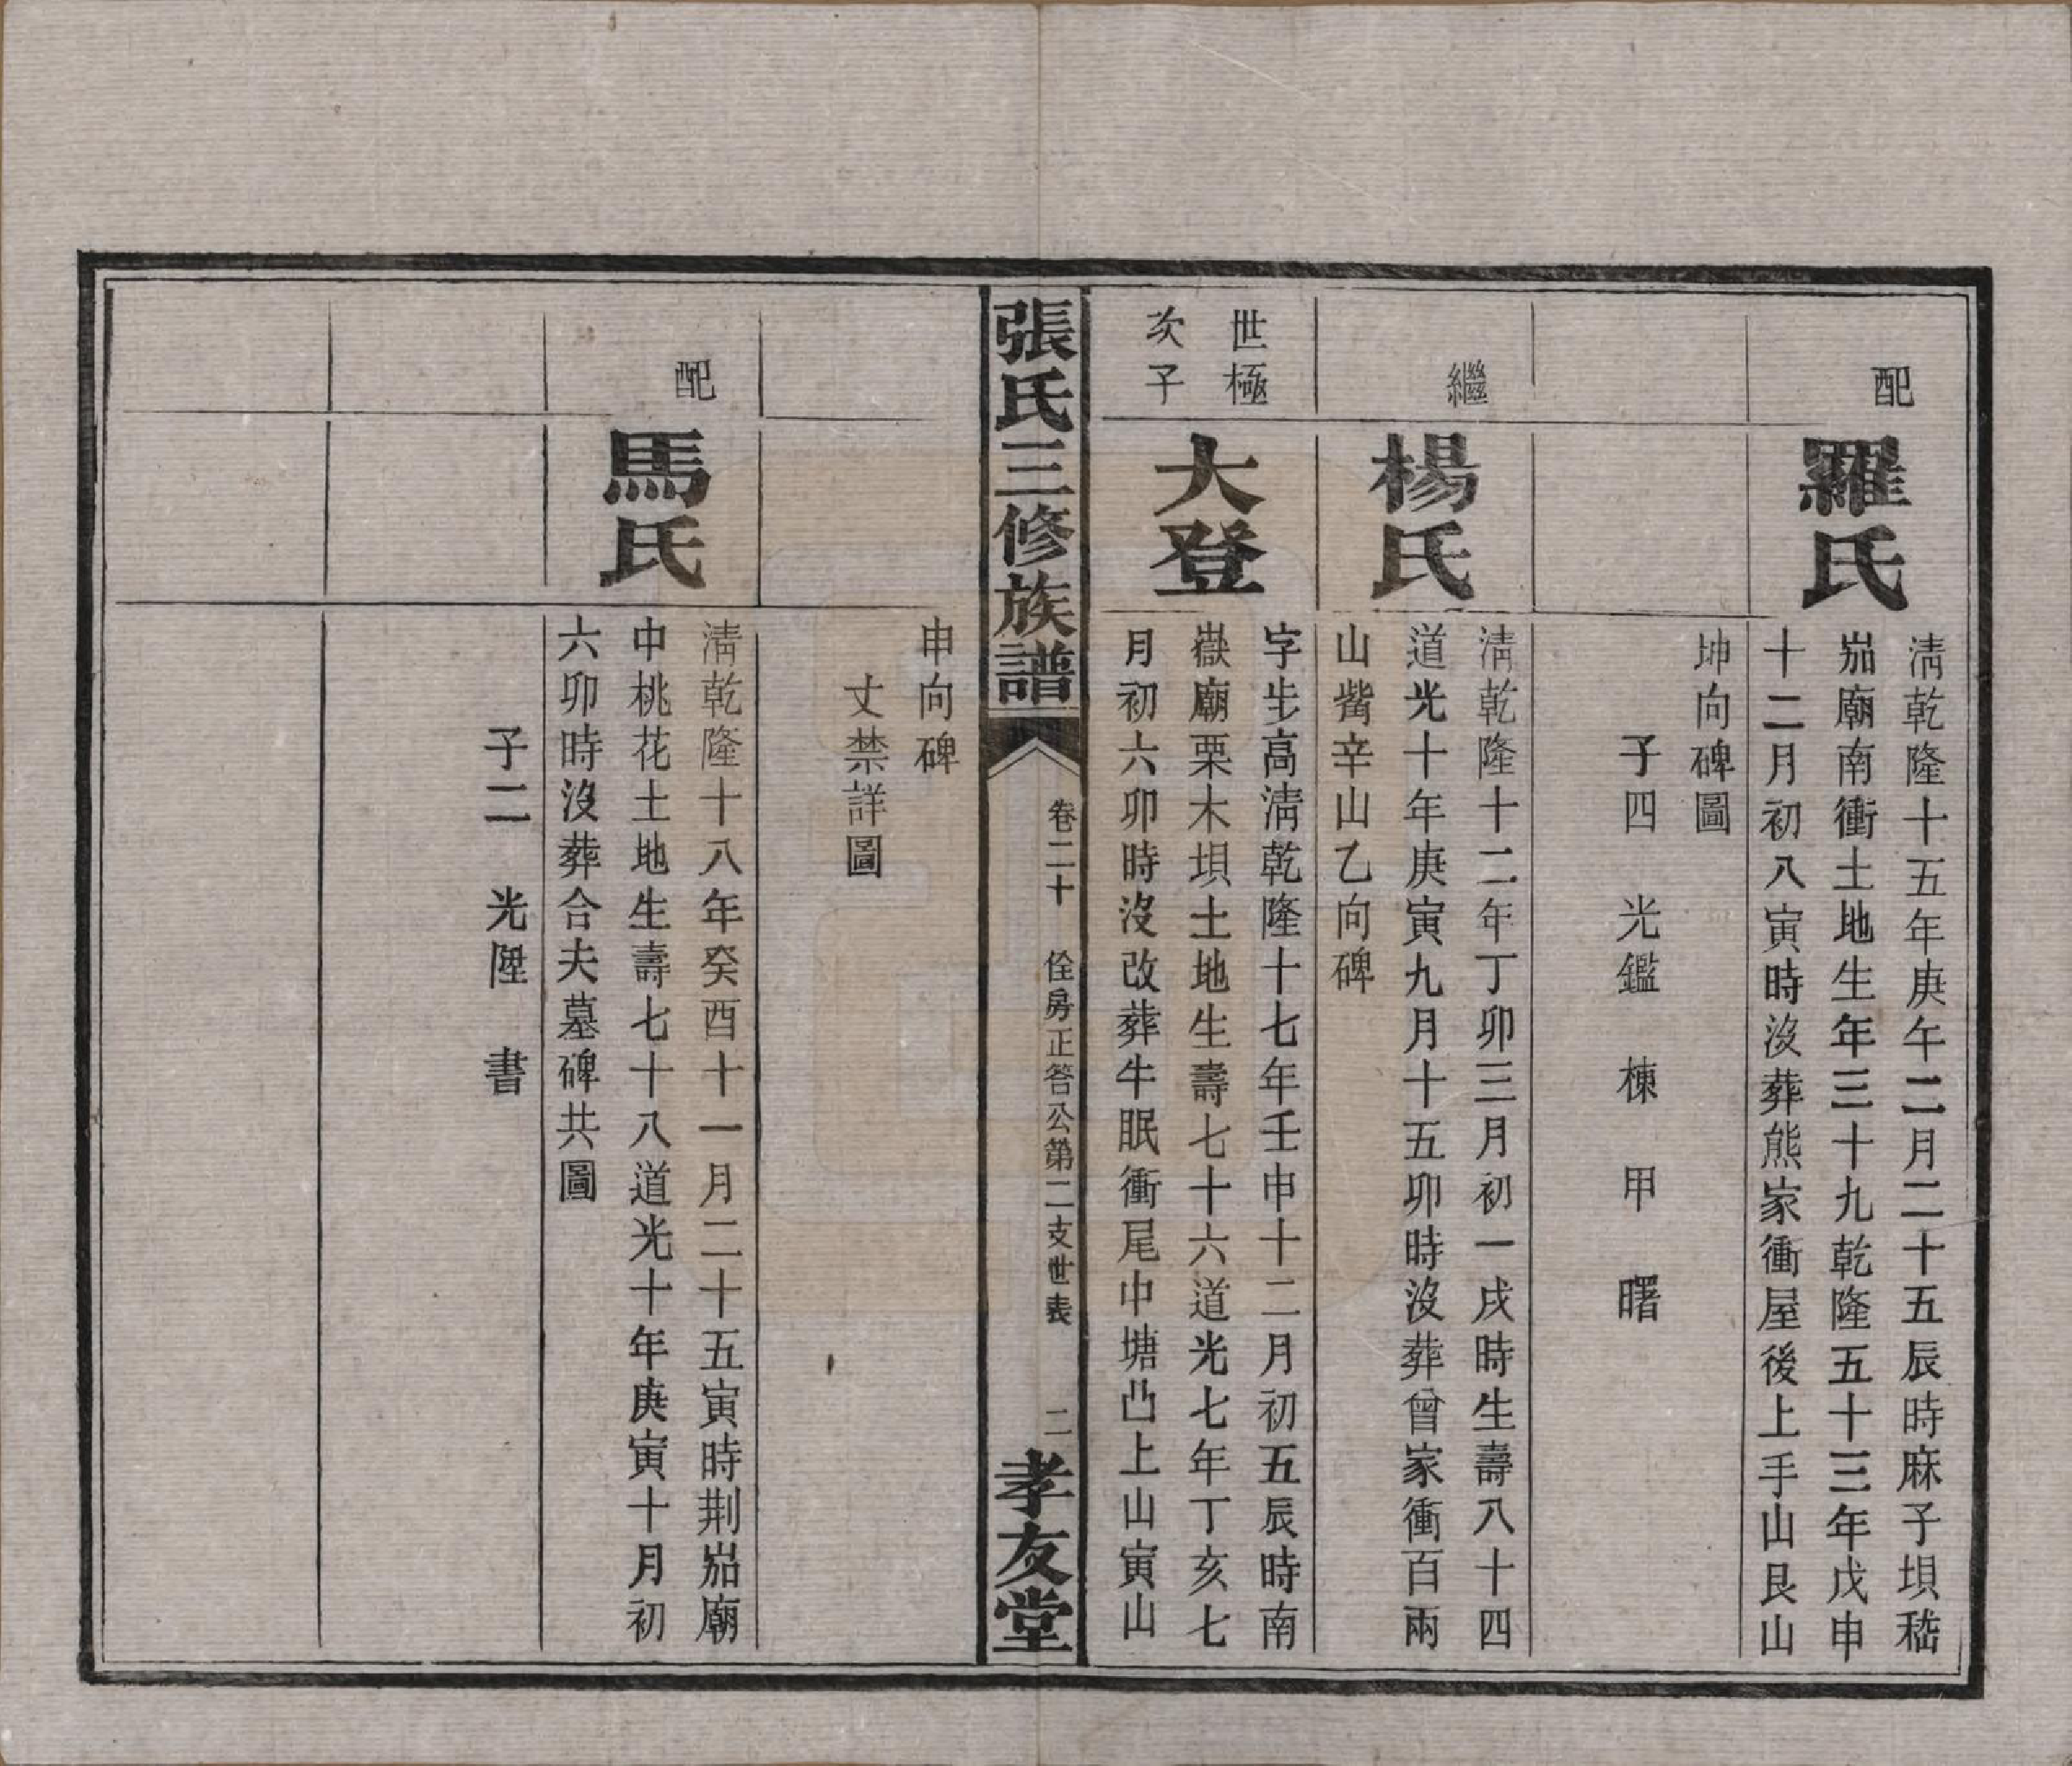 配
羅氏
淸乾隆十五年庚午二月二十五辰時麻子垻嵇
茄廟南衝土地生年三十九乾隆五十三年戊申
十二月初八寅時沒葬熊家衝屋後上手山艮山
坤向碑圖
子四　光鑑　棟　甲　曙
繼
楊氏
淸乾隆十二年丁卯三月初一戌時生壽八十四
道光十年庚寅九月十五卯時沒葬曾家衝百兩
山觜辛山乙向碑
世極
次子
大登
字步高淸乾隆十七年壬申十二月初五辰時南
嶽廟栗木垻土地生壽七十六道光七年丁亥七
月初六卯時沒改葬牛眠衝尾中塘凸上山寅山
張氏三修族譜
卷二十　佺房正答公第二支世表　二
孝友堂
申向碑
丈禁詳圖
配
馬氏
淸乾隆十八年癸酉十一月二十五寅時荆茄廟
中桃花土地生壽七十八道光十年庚寅十月初
六卯時沒葬合夫墓碑共圖
子二　光陞　書